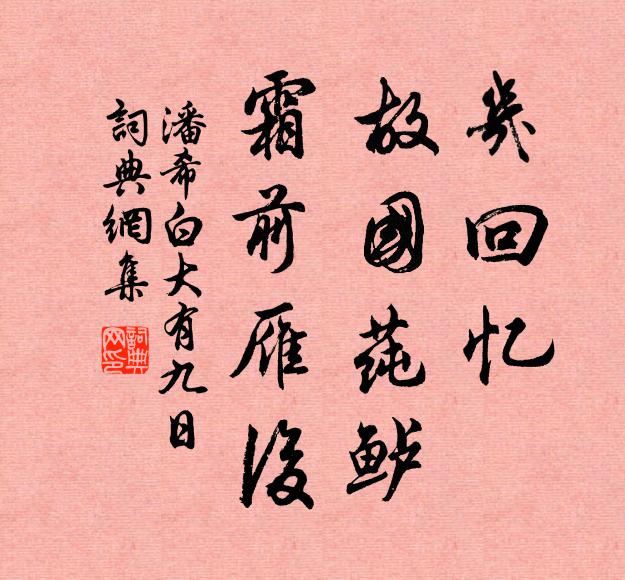 幾回忆
故國莼鲈
霜前雁後
潘希白大有九日
詞典網集
詞典网印